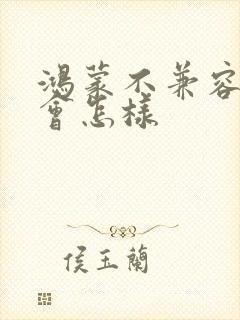 鴻蒙不兼容
會怎樣
侯玉蘭